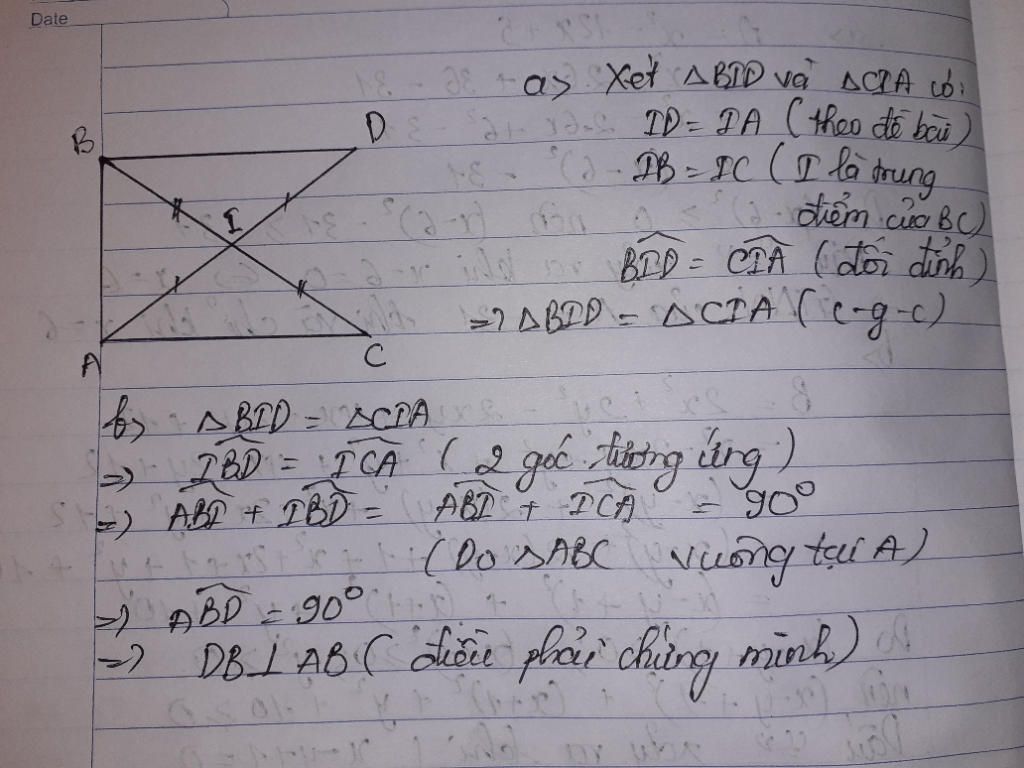 Date
a> Xét △BID và △CIA có:
ID = IA (theo đề bài)
IB = IC (I là trung
điểm của BC)
B
D
I
A
C
BID = CIA (đối đỉnh)
=> △BID = △CIA (c-g-c)
b> △BID = △CIA
=> IBD = ICA (2 góc tương ứng)
=> ABI + IBD = ABI + ICA = 90°
(Do △ABC vuông tại A)
=> ABD = 90°
=> DB⊥AB (điều phải chứng minh)